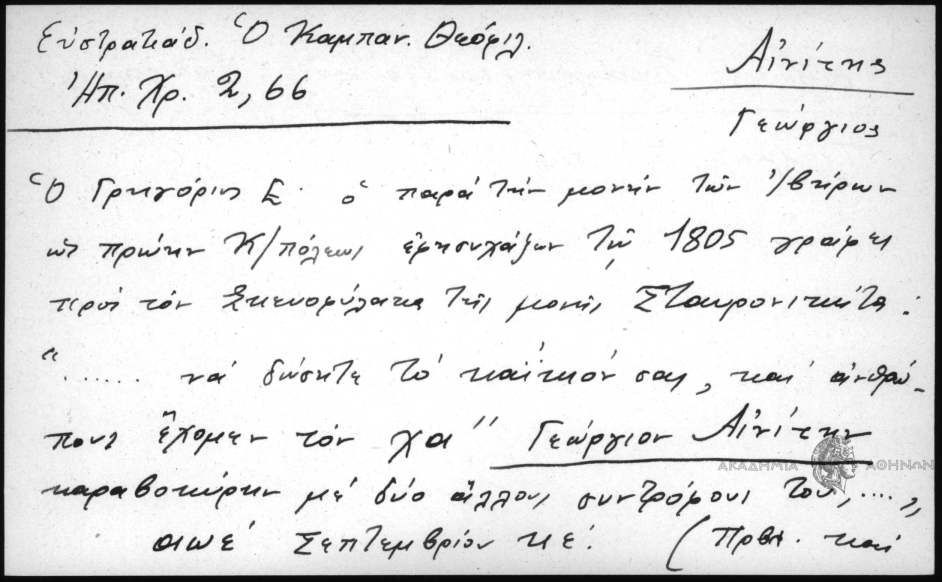 Εὐστρατιάδ. Ὁ Καμπαν. Θεόφιλ.
Ἠπ. Χρ. 2, 66
Αἰνίτης
Γεώργιος
Ὁ Γρηγόριος Ε΄ ὁ παρά τήν μονήν τῶν Ἰβήρων
ὡς πρώην Κ/πόλεως ἐφησυχάζων τῷ 1805 γράφει
πρός τόν Σκευοφύλακα τῆς μονῆς Σταυρονικήτα:
"...... νά δώσητε τό καΐκιόν σας, καί ἀνθρώ-
πους ἔχομεν τόν χα" Γεώργιον Αἰνίτην
ΑΚΑΔΗΜΙΑ ΑΘΗΝΩΝ
καραβοκύρην μέ δύο ἄλλους συντρόφους του, ....,,
αωέ Σεπτεμβρίου κέ. (Πρβλ. καί